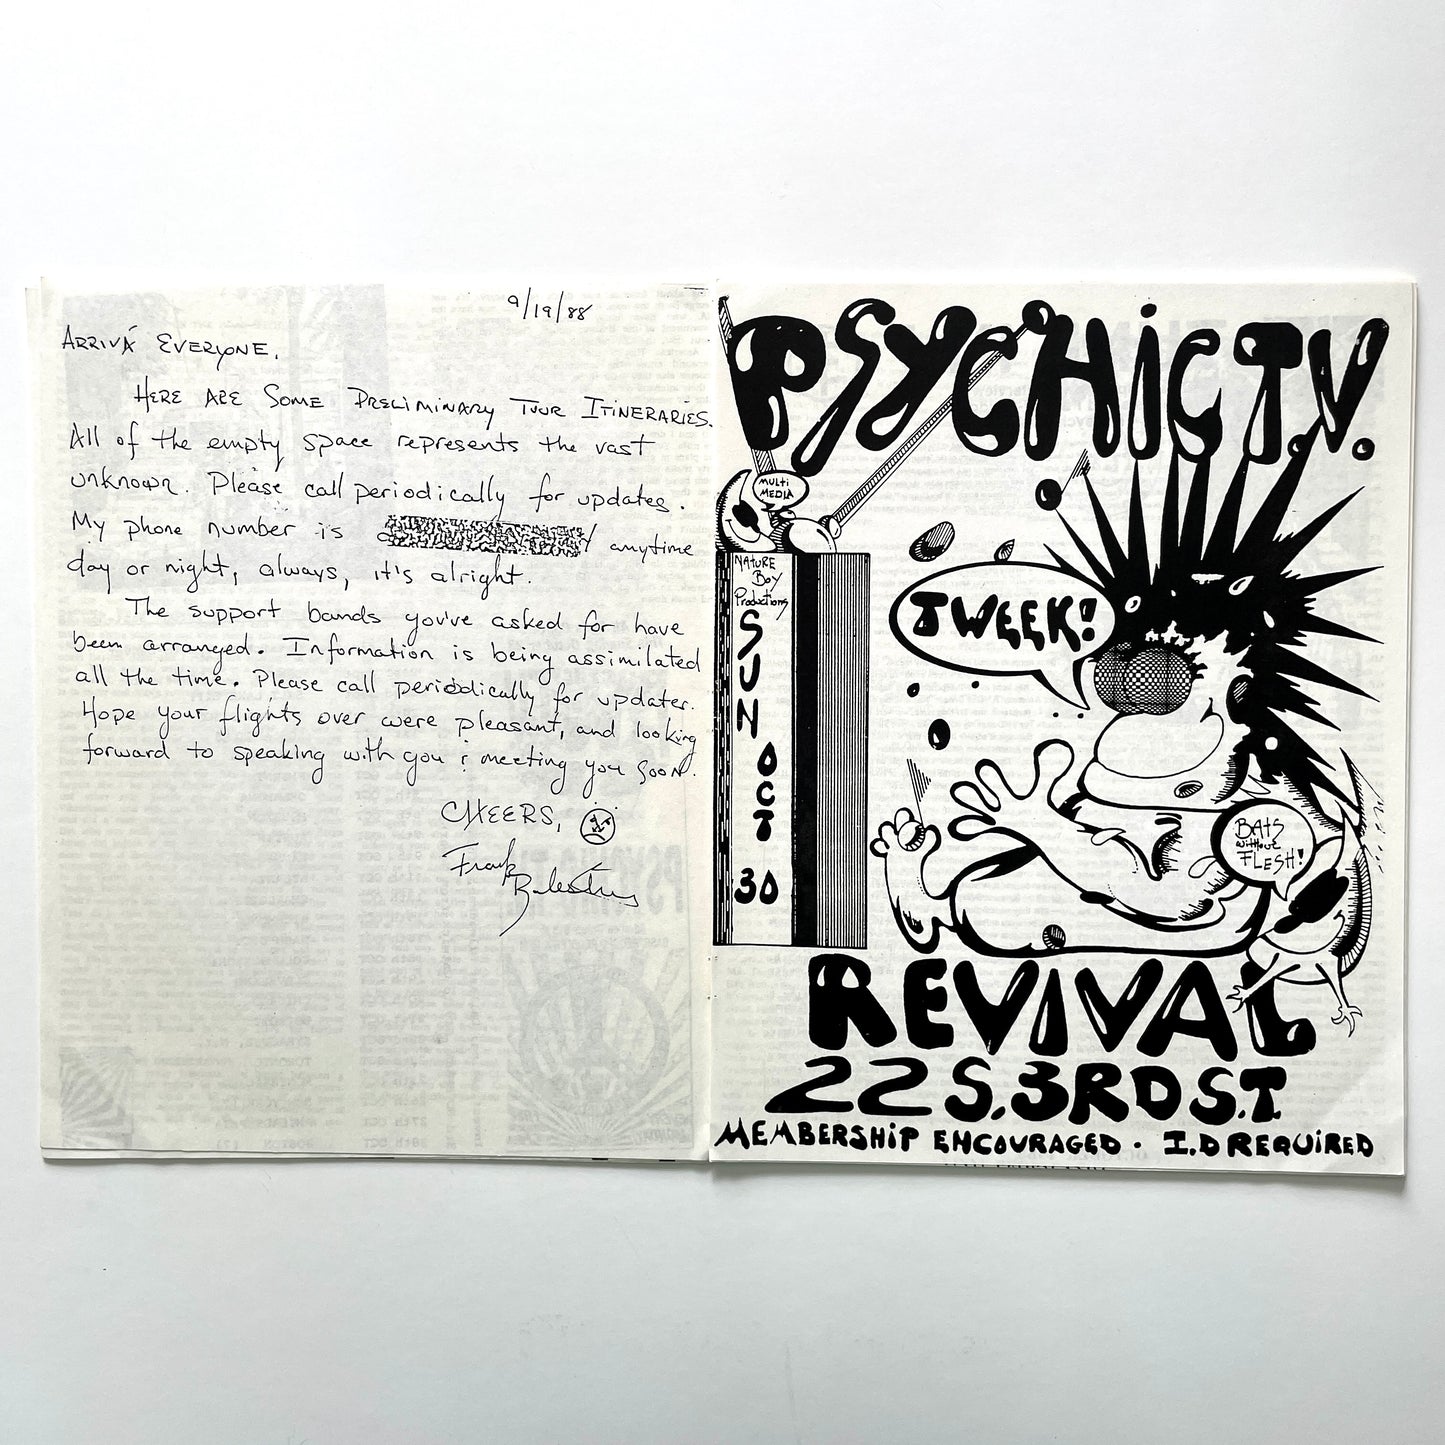 9/19/88
ARRIVÁ EVERYONE,
HERE ARE SOME PRELIMINARY TOUR ITINERARIES.
All of the empty space represents the vast
unknown. Please call periodically for updates.
My phone number is anytime
day or night, always, it's alright.
The support bands you've asked for have
been arranged. Information is being assimilated
all the time. Please call periodically for updates.
Hope your flights over were pleasant, and looking
forward to speaking with you & meeting you soon.
CHEERS,
Frank
PSYCHIC T.V.
MULTI
MEDIA
NATURE
BOY
Productions
SUN OCT 30
TWEEK!
BATS
without
FLESH!
REVIVAL
22 S. 3RD S.T.
MEMBERSHIP ENCOURAGED · I.D REQUIRED